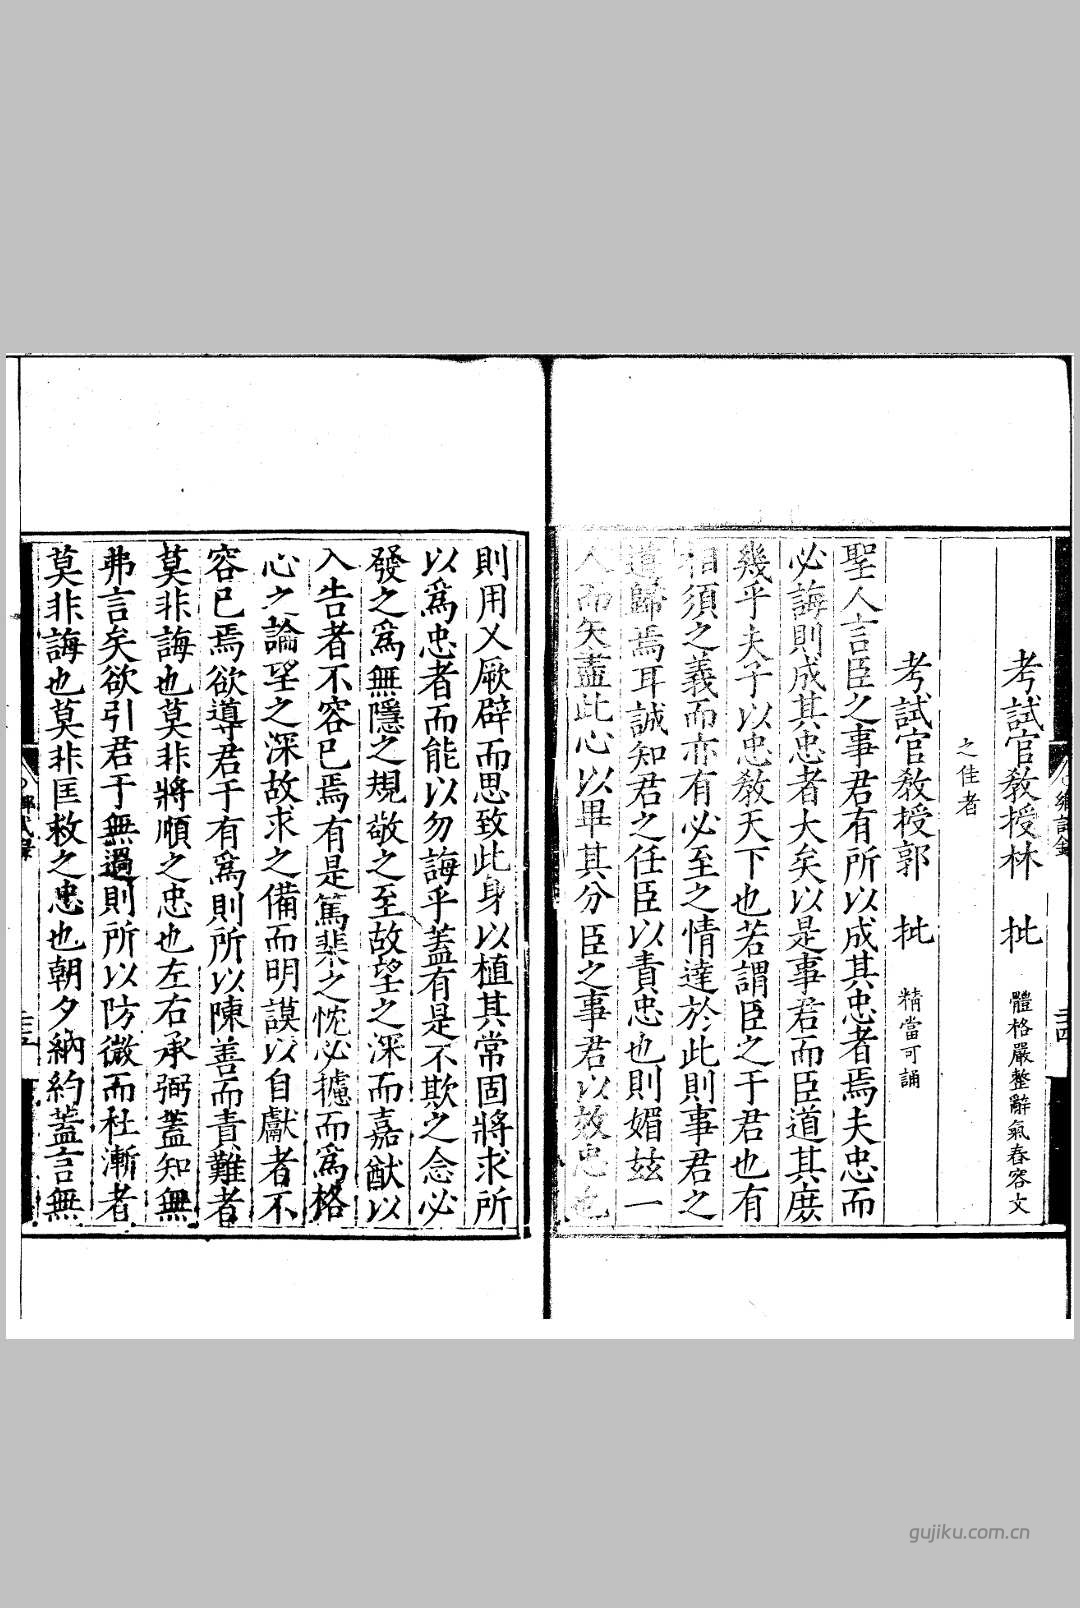 考試官教授林 批 體格嚴整辭氣春容文
之佳者
考試官教授郭 批 精當可誦
聖人言臣之事君有所以成其忠者焉夫忠而
必誨則成其忠者大矣以是事君而臣道其庶
幾乎夫子以忠教天下也若謂臣之于君也有
相須之義而亦有必至之情達於此則事君之
道歸焉耳誠知君之任臣以責忠也則媚玆一
人而矢盡此心以畢其分臣之事君以效忠也
則用乂厥辟而思致此身以植其常固將求所
以爲忠者而能以勿誨乎蓋有是不欺之念必
發之爲無隱之規敬之至故望之深而嘉猷以
入告者不容已焉有是篤棐之忱必攄而爲格
心之論望之深故求之備而明謨以自獻者不
容已焉欲導君于有爲則所以陳善而責難者
莫非誨也莫非將順之忠也左右承弼蓋知無
弗言矣欲引君于無過則所以防微而杜漸者
莫非誨也莫非匡救之忠也朝夕納約蓋言無
鄉試錄
三十四
gujiku.com.cn